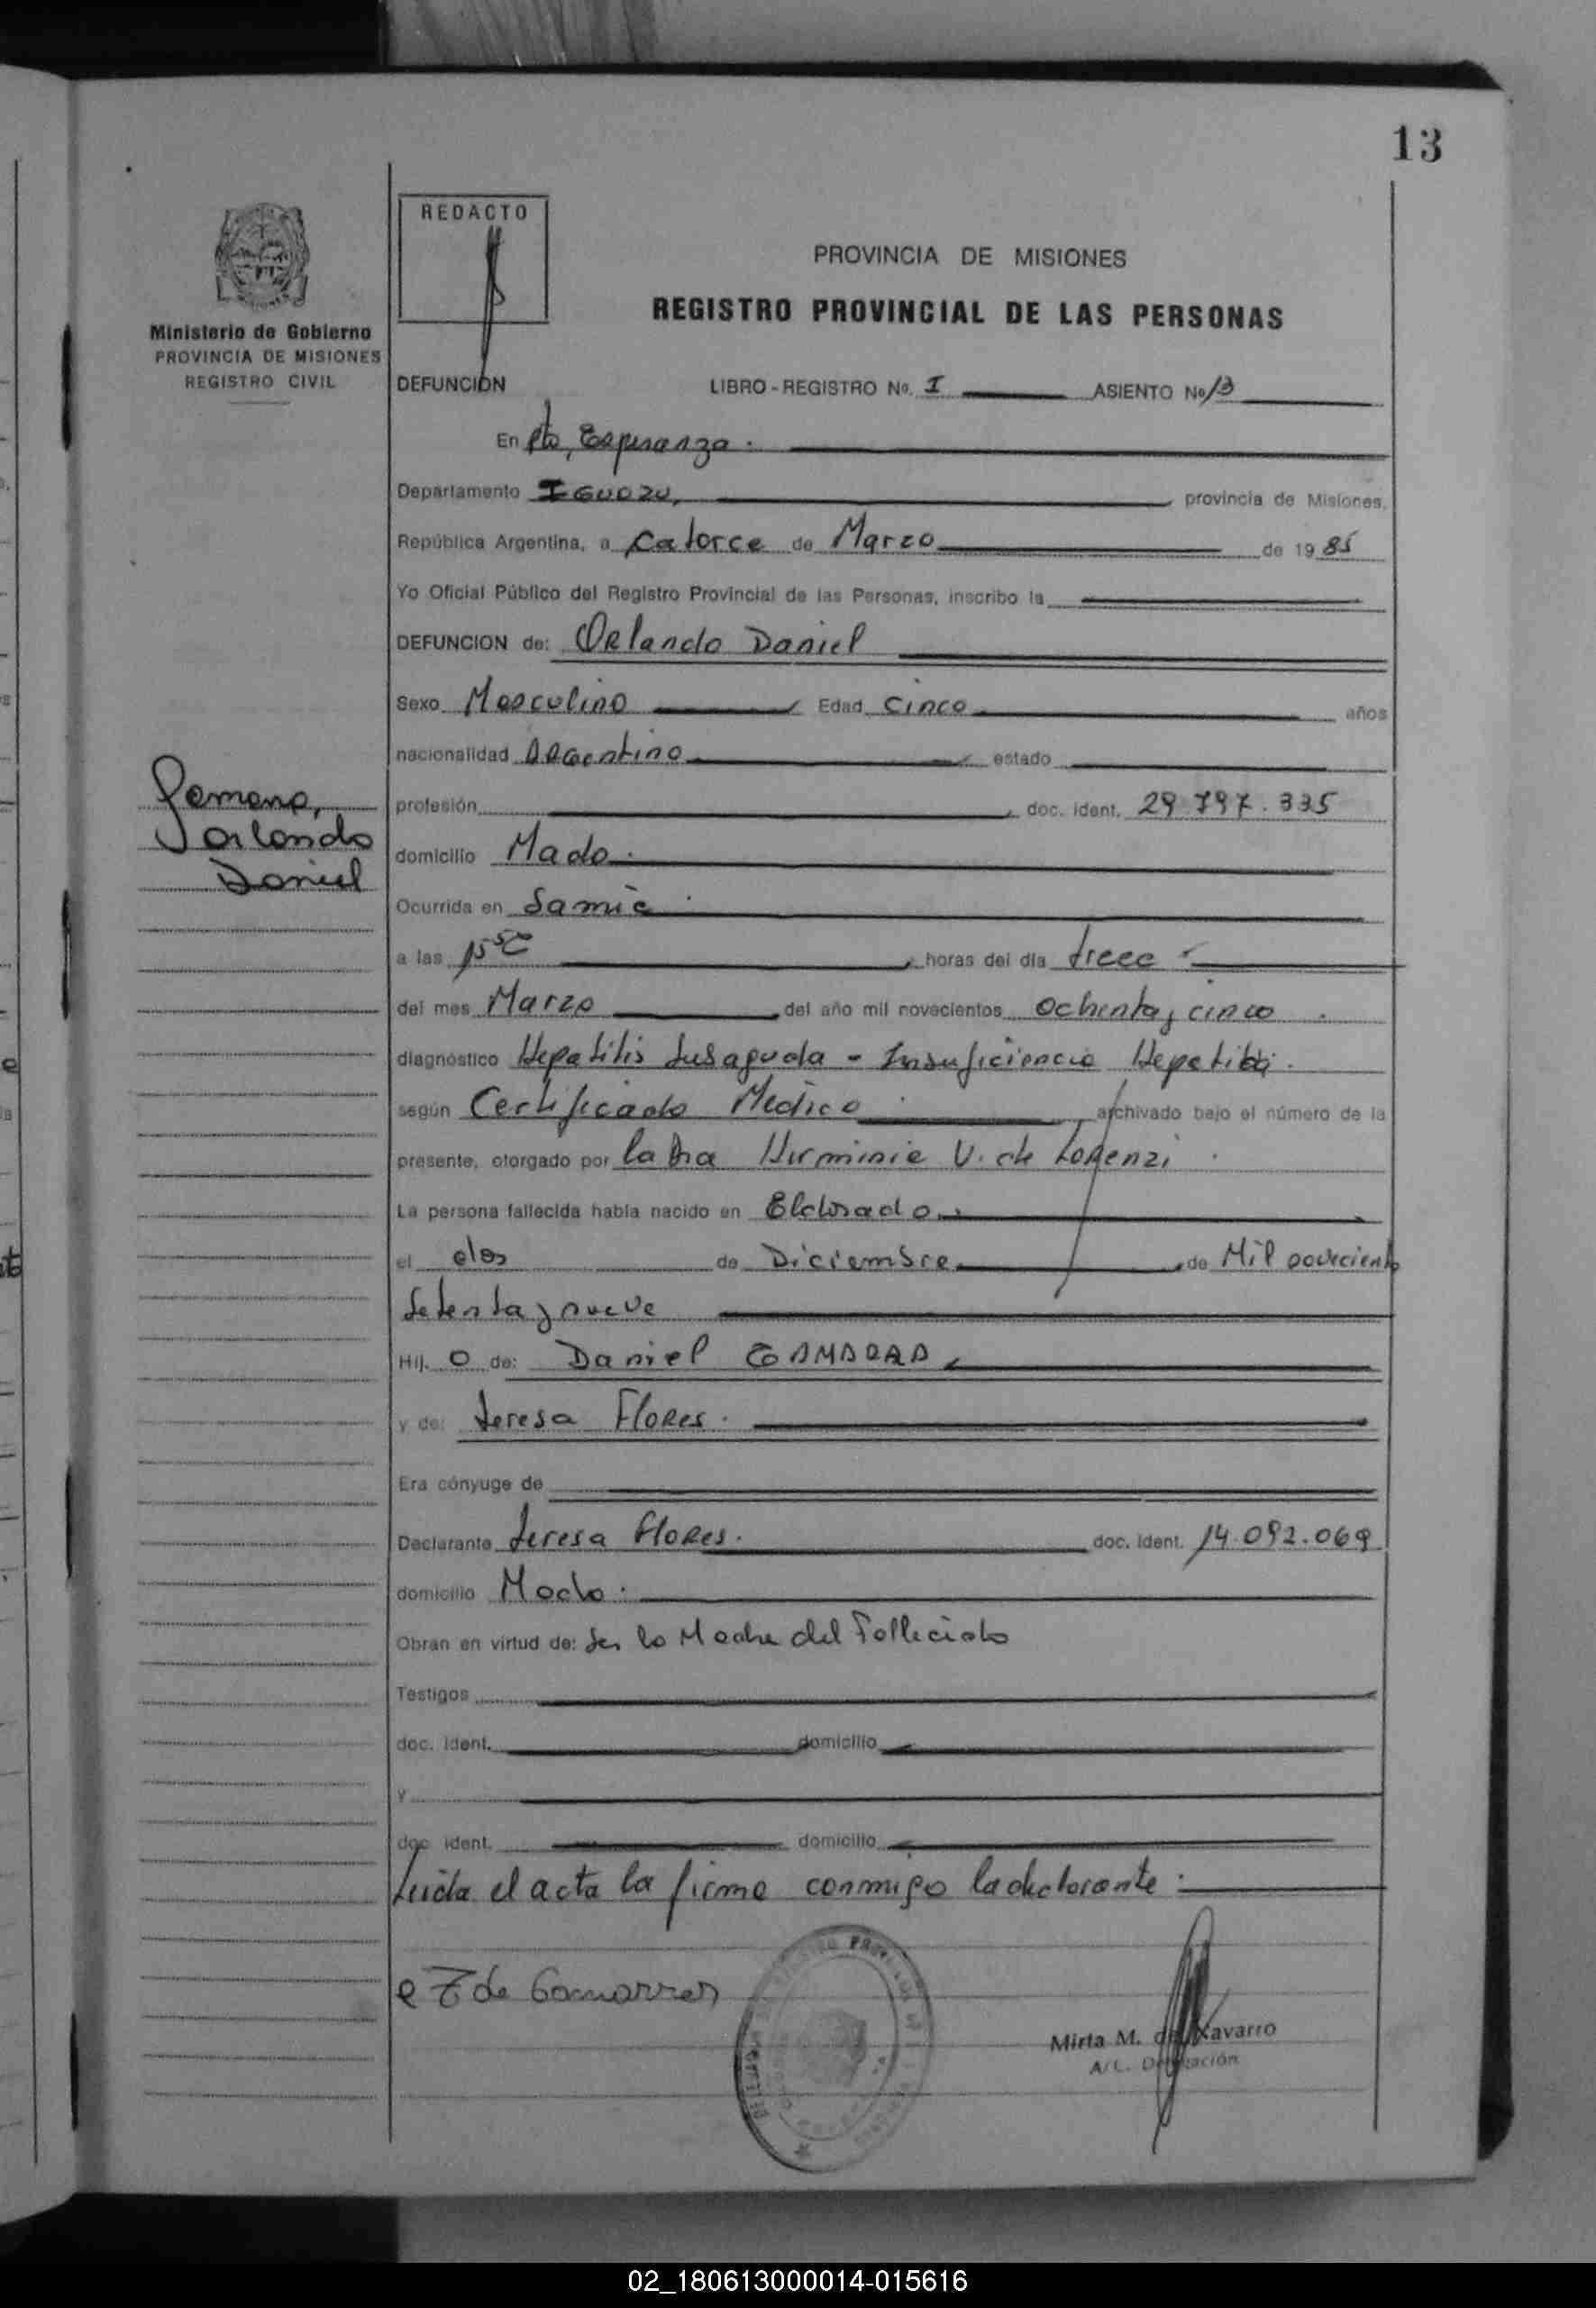 13
REDACTO
PROVINCIA DE MISIONES
REGISTRO PROVINCIAL DE LAS PERSONAS
Ministerio de Gobierno
PROVINCIA DE MISIONES
REGISTRO CIVIL
DEFUNCIÓN LIBRO - REGISTRO No. I ASIENTO No 13
En Pto, Esperanza.
Departamento IGUAZU, provincia de Misiones,
República Argentina, a Catorce de Marzo de 1985
Yo Oficial Público del Registro Provincial de las Personas, inscribo la
DEFUNCION de: Orlando Daniel
Sexo Masculino Edad Cinco años
nacionalidad Argentino estado
Orlando
Daniel
profesión doc. ident. 29.797.335
domicilio Mado.
Ocurrida en Samic.
a las 15 horas del día trece
del mes Marzo del año mil novecientos ochenta y cinco.
diagnóstico Hepatitis Subaguda - Insuficiencia Hepatica.
según Certificado Medico. archivado bajo el número de la
presente, otorgado por la Dra Herminia V. de Lorenzi.
La persona fallecida había nacido en Eldorado.
el dos de Diciembre de Mil noveciento
Setenta y nueve
Hij. o de: Daniel GAMARRA
y de: Teresa Flores.
Era cónyuge de
Declarante Teresa Flores. doc. ident. 14.092.069
domicilio Mado.
Obran en virtud de: Ser la Madre del Fallecido
Testigos
doc. ident. domicilio
y
doc. ident. domicilio
Leida el acta la firma conmigo la declarante.
de Gamarra
Mirta M. de Navarro
A/C. Delegación
02_180613000014-015616